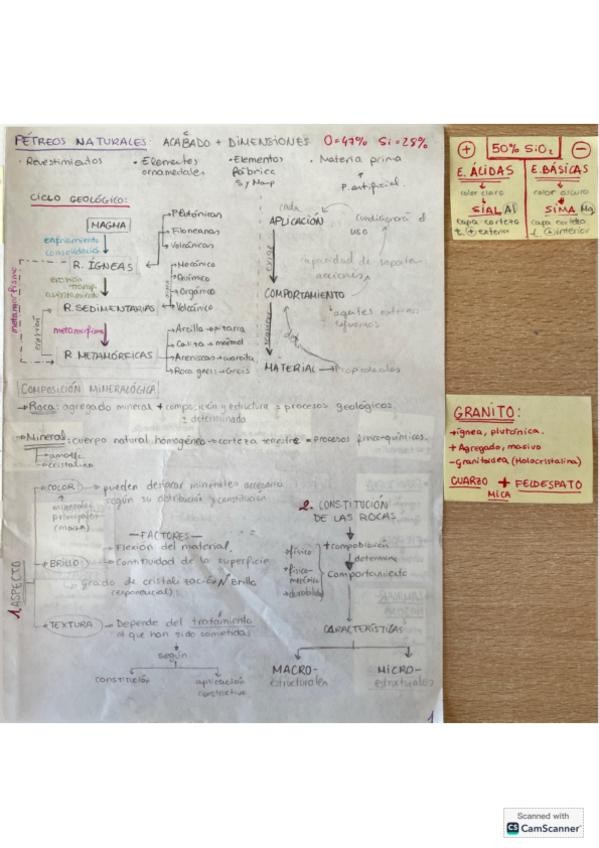 PÉTREOS NATURALES: ACABADO + DIMENSIONES O=47% Si=28%
· Revestimientos · Elementos ornamentales · Elementos fábrica · Materia prima
P. artificial.
CICLO GEOLÓGICO:
MAGMA
enfriamiento
consolidación
R. ÍGNEAS
→ Plutónicas
→ Filoneanas
→ Volcánicas
erosión
R. SEDIMENTARIAS
→ Mecánico
→ Químico
→ Orgánico
→ Volcánico
metamorfismo
erosión
metamorfismo
R. METAMÓRFICAS
→ Arcilla → pizarra
→ Caliza → mármol
→ Areniscas → cuarcita
→ Roca gneis → Gneis
cada
APLICACIÓN
condicionará el
uso
exige
capacidad de soportar
acciones
COMPORTAMIENTO
agentes externos
esfuerzos
MATERIAL → Propiedades
COMPOSICIÓN MINERALÓGICA
→ Roca: agregado mineral + composición y estructura = procesos geológicos
determinada
→ Mineral: cuerpo natural homogéneo → corteza terrestre = Procesos físico-químicos.
→ amorfo
→ cristalino
1. ASPECTO
COLOR → pueden destacar minerales accesorios
según su distribución y constitución
minerales
principales
— FACTORES —
BRILLO
- Flexión del material.
- Continuidad de la superficie
- Grado de cristalización Brillo
(exponencial)
TEXTURA - Depende del tratamiento
al que han sido sometidas
según
constitución
aplicación
constructiva
2. CONSTITUCIÓN
DE LAS ROCAS
→ físico
→ físico-
mecánico
→ durabilidad
determina
Comportamiento
CARACTERÍSTICAS
MACRO-
estructurales
MICRO-
estructurales
1
+ 50% SiO₂ -
E. ÁCIDAS E. BÁSICAS
color claro color oscuro
SIAL Al SIMA Mg
capa corteza capa corteza
t. + exterior t. interior
GRANITO:
→ ígnea, plutónica.
→ Agregado, masivo
- Granitoidea (Holocristalina)
CUARZO + FELDESPATO
MICA
Scanned with
CS CamScanner